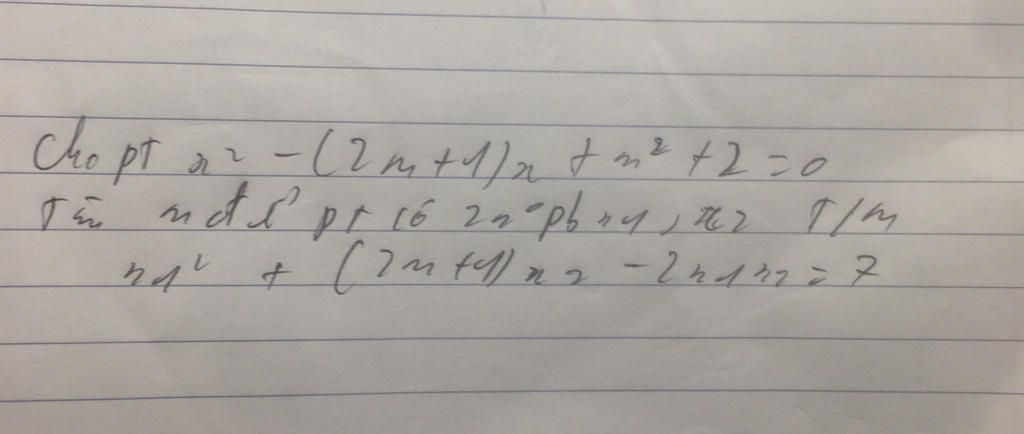 Cho pt x² - (2m+1)x + m² + 2 = 0
Tìm m để pt có 2 n° pb x1, x2 T/m
x1² + (2m+1)x2 - 2x1x2 = 7